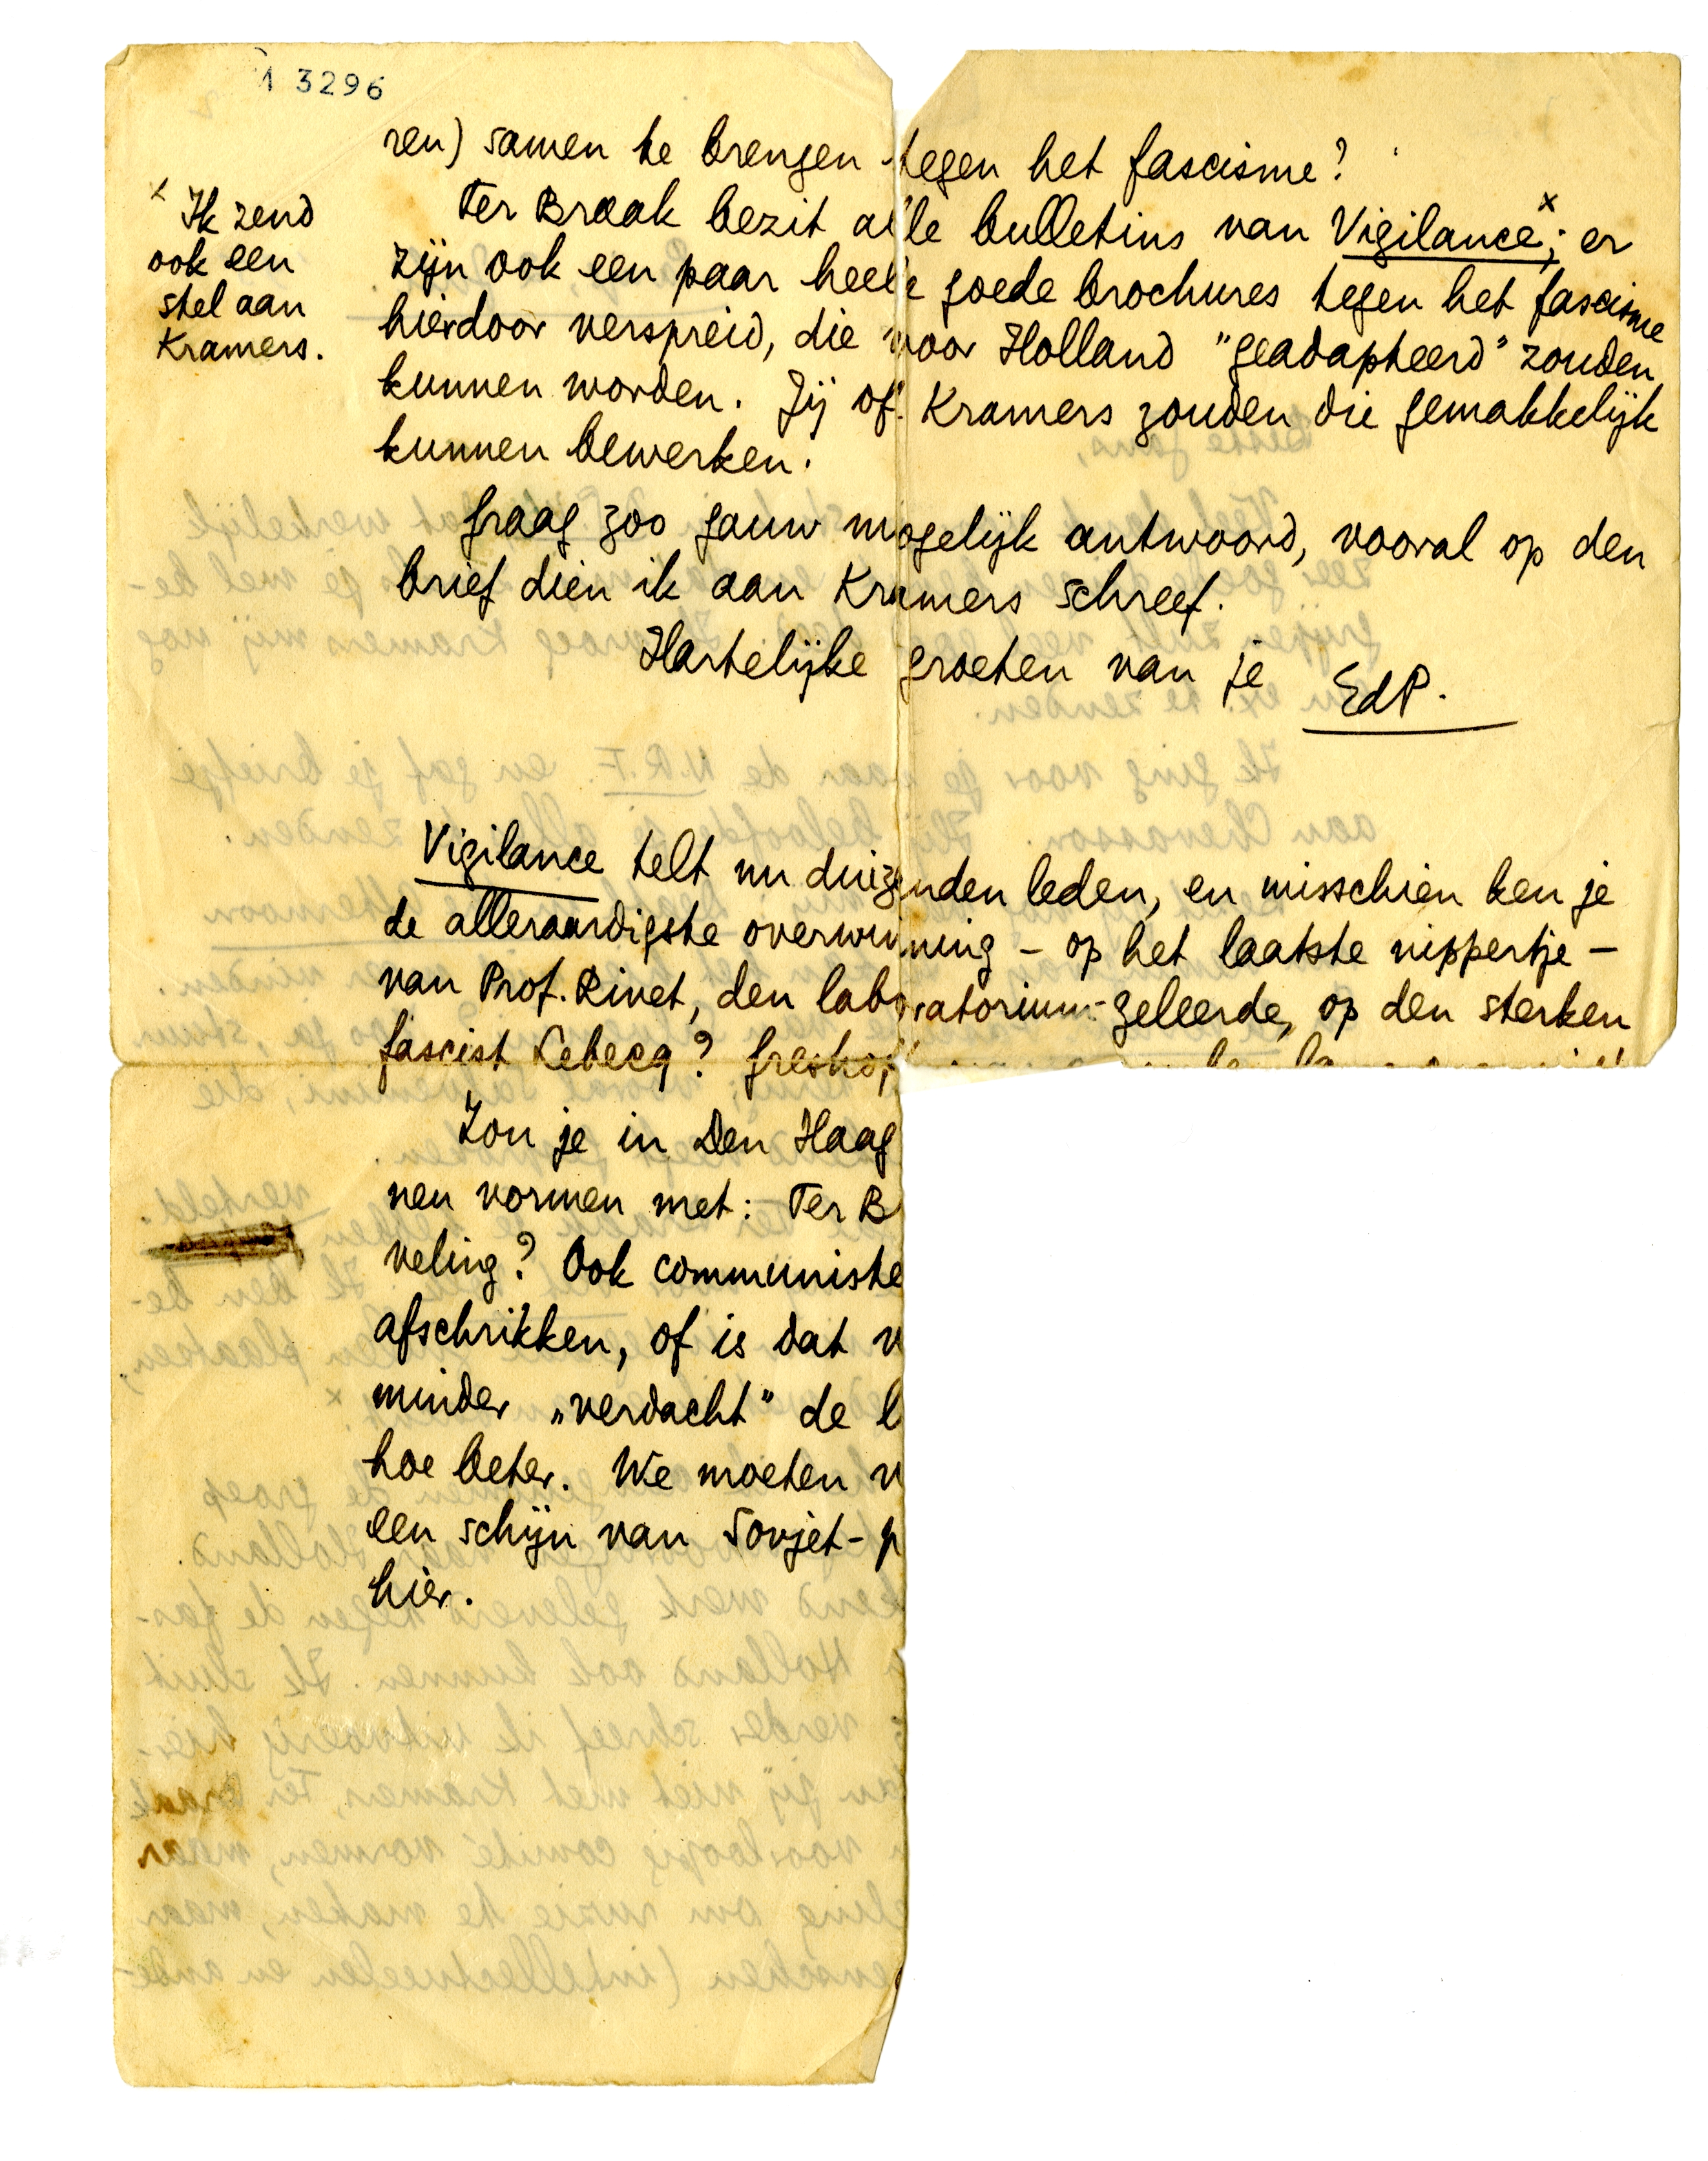 1 3296
ren) samen te brengen tegen het fascisme?
Ter Braak bezit alle bulletins van Vigilance x; er
zijn ook een paar heele goede brochures tegen het fascisme
hierdoor verspreid, die voor Holland "geadapteerd" zouden
kunnen worden. Jij of Kramers zouden die gemakkelijk
kunnen bewerken.
x Ik zend
ook een
stel aan
Kramers.
Graag zoo gauw mogelijk antwoord, vooral op den
brief dien ik aan Kramers schreef.
Hartelijke groeten van je EdP.
Vigilance telt nu duizenden leden, en misschien ken je
de alleraardigste overwinning – op het laatste nippertje –
van Prof. Rivet, den laboratorium-geleerde, op den sterken
fascist Lebecq?
Zou je in Den Haag
nen vormen met: Ter B
veling? Ook communiste
afschrikken, of is dat
minder „verdacht" de
hoe beter. We moeten
een schijn van Sovjet-p
hier.